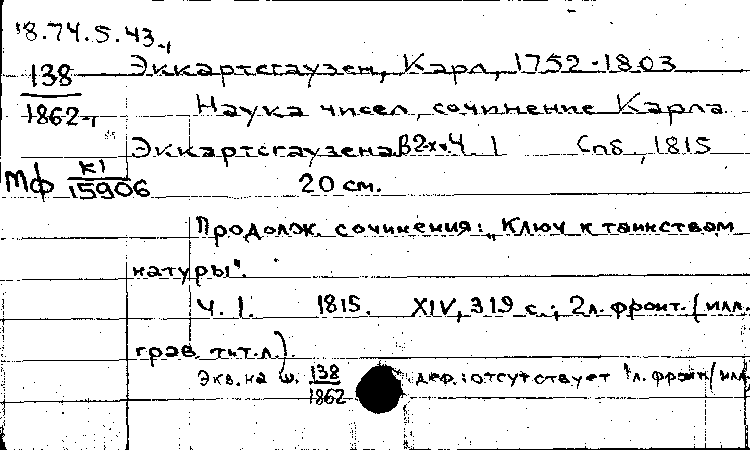 18.74.5.43
138
1862
Эккартсгаузен, Карл, 1752-1803
Наука чисел, сочинение Карла
Эккартсгаузена В 2х ч. 1 Спб., 1815
Мф К1
15906
20 см.
Продолж. сочинения: „Ключ к таинствам
натуры".
Ч. 1. 1815. XIV, 319 с.; 2 л. фронт. (илл.
грав. тит. л.).
Экв. на ш. 138
1862
деф.: отсутствует 1 л. фронт (илл.